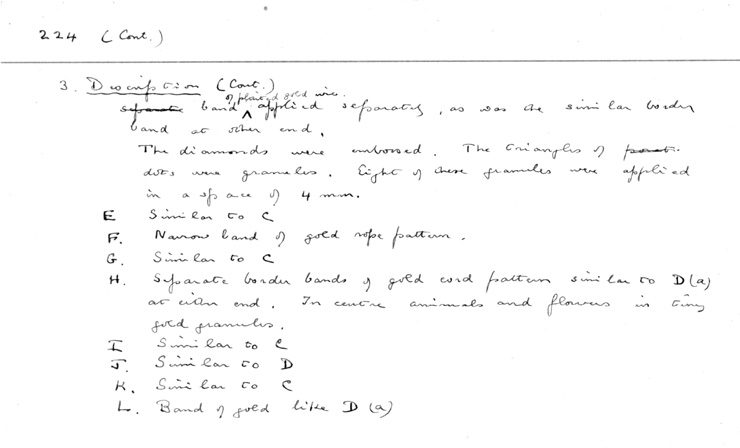 224 (Cont.)
3. Description (Cont.)
of plaited gold wire
separate band applied separately, as was the similar border
band at other end.
The diamonds were embossed. The triangles of
dots were granules. Eight of these granules were applied
in a space of 4 mm.
E Similar to C
F. Narrow band of gold rope pattern.
G. Similar to C
H. Separate border bands of gold cord pattern similar to D(a)
at either end. In centre animals and flowers in tiny
gold granules.
I Similar to C
J. Similar to D
K. Similar to C
L. Band of gold like D (a)